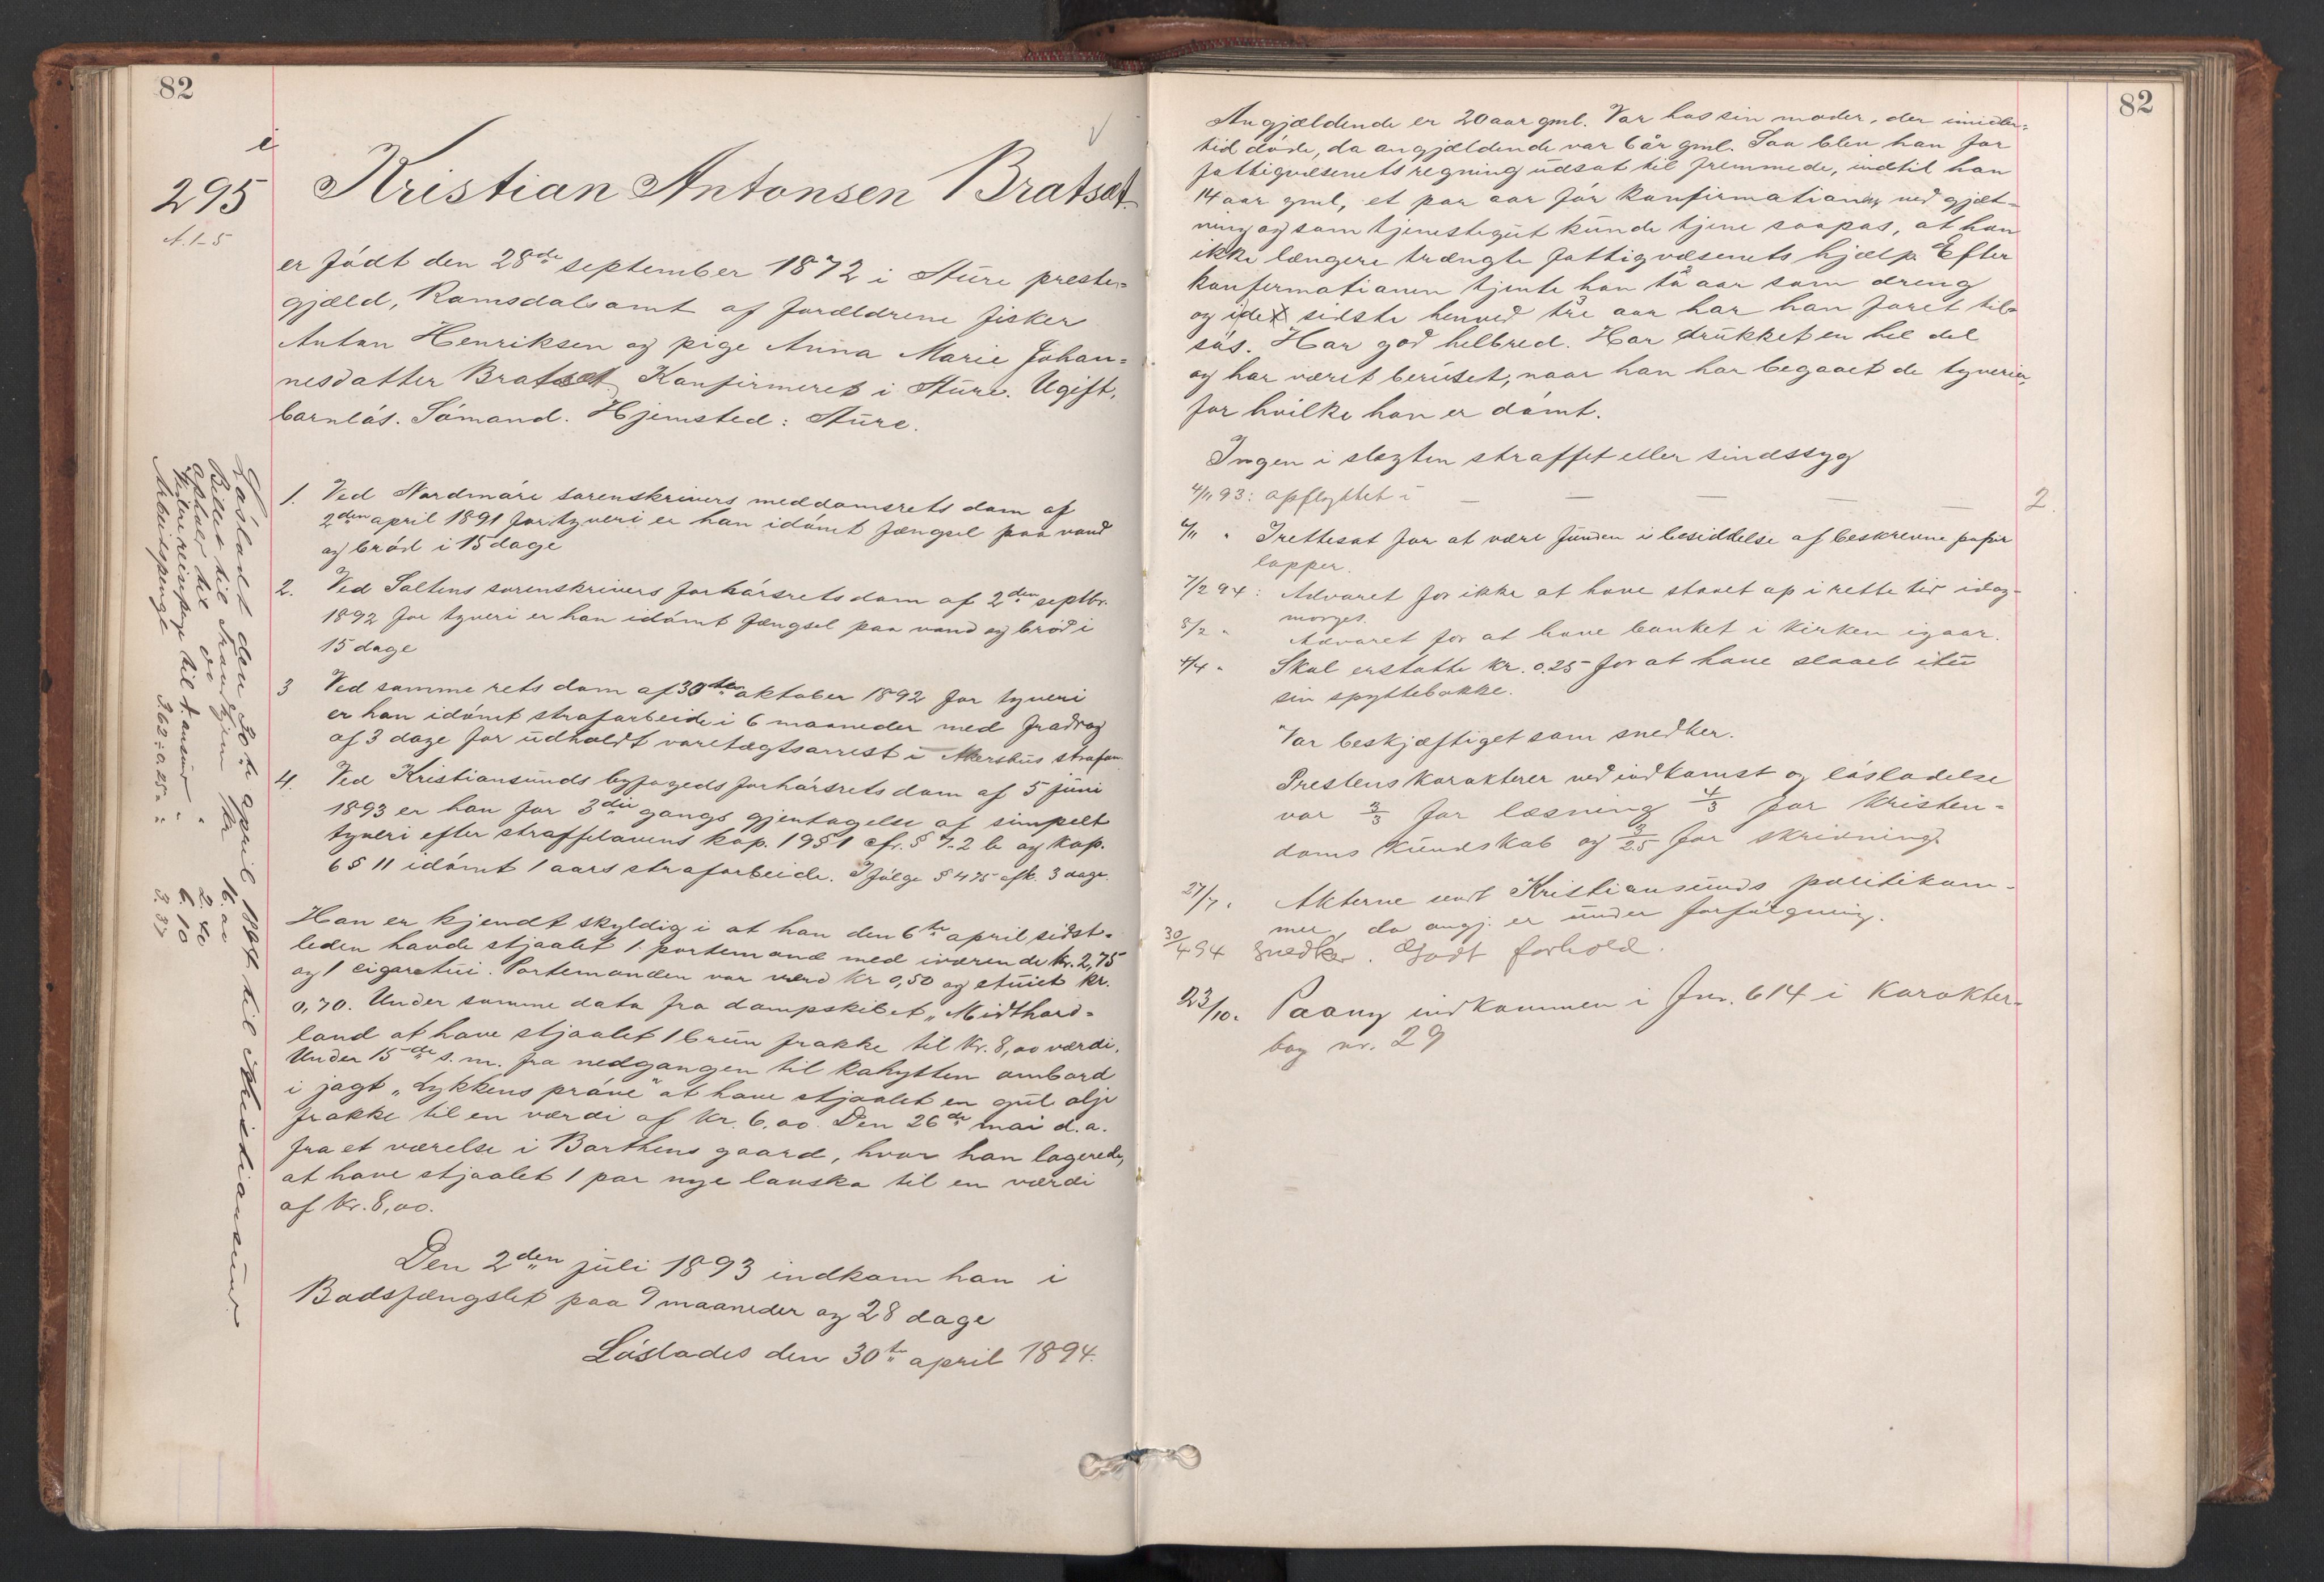 82
i
295
A. 1-5
Kristian Antonsen Bratset
er födt den 28de september 1872 i Aure preste=
gjæld, Romsdals amt af forældrene fisker
Anton Henriksen og pige Anna Marie Johan=
nesdatter Bratset. Konfirmeret i Aure. Ugift,
barnlös. Sömand. Hjemsted: Aure.
1. Ved Nordmöre sorenskrivers meddomsrets dom af
2den april 1891 for tyveri er han idömt fængsel paa vand
og bröd i 15 dage
2. Ved Saltens sorenskrivers forhörsrets dom af 2den septbr.
1892 for tyveri er han idömt fængsel paa vand og bröd i
15 dage
3 Ved samme rets dom af 30te oktober 1892 for tyveri
er han idömt strafarbeide i 6 maaneder med fradrag
af 3 dage for udholdt varetægtsarrest i Akershus strafan
4. Ved Kristiansunds byfogeds forhörsrets dom af 5 juni
1893 er han for 3die gangs gjentagelse af simpelt
tyveri efter straffelovens kap. 19 § 1 cfr. § 7-2 b og kap.
6 § 11 idömt 1 aars strafarbeide. Ifölge § 475 afk. 3 dage.
Han er kjendt skyldig i at han den 6te april sidst=
leden havde stjaalet 1 portemonæ med iværende Kr. 2,75
og 1 cigaretui. Portemonæen var værd Kr 0,50 og etuiet Kr.
0,70. Under samme dato fra dampskibet „Midthord=
land at have stjaalet 1 brun frakke til Kr. 8,00 værdi.
Under 15de s. m. fra nedgangen til kahytten ombord
i jagt „Lykkens pröve" at have stjaalet en gul olje
frakke til en værdi af Kr. 6.00. Den 26de mai d. a.
fra et værelse i Barthens gaard, hvor han logerede,
at have stjaalet 1 par nye lausko til en værdi
af Kr. 8,00.
Den 2den juli 1893 indkom han i
Bodsfængslet paa 9 maaneder og 28 dage
Löslades den 30te april 1894.
Lösladt den 30te april 1894 til Kristiansund
Billet til Trondhjem Kr 16.00
ophold til do 2.40
Videre reisepenge til K.ansund " 6.10
Arbeidspenge 3.62 ÷ 0.25 = 3.37
82
Angjældende er 20 aar gml. Var hos sin moder, der imidler=
tid döde, da angjældende var 6 år gml. Saa blev han for
fattigvæsenets regning udsat til fremmede, indtil han
14 aar gml, et par aar för konfirmationen ved gjæt=
ning og som tjenestegut kunde tjene saapas, at han
ikke længere trængte fattigvæsenets hjælp. Efter
konfirmationen tjente han to aar som dreng
og i de sidste henved tre aar har han faret til=
sös. Har god helbred. Har drukket en hel del
og har været beruset, naar han har begaaet de tyverier,
for hvilke han er dömt.
Ingen i slegten straffet eller sindssyg
4/11 93: opflyttet i — — — — — 2.
6/11 " Irettesat for at være funden i besiddelse af beskrevne papir
lapper.
7/2 94: Advaret for ikke at have staaet op i rette tid idag=
morges.
8/2 " Advaret for at have banket i kirken igaar.
4/4 " Skal erstatte kr. 0.25 for at have slaaet itu
sin spyttebakke.
Var beskjæftiget som snedker.
Prestens karakterer ved indkomst og lösladelse
var 3/3 for læsning 4/3 for kristen=
doms kundskab og 3/2.5 for skrivning.
27/7. Akterne sendt Kristiansunds politikam=
mer, da angj. er under forfölgning.
30/4 94 Snedker. Godt forhold.
23/10. Paany indkommen i Jnr. 614 i karakter=
bog nr. 29